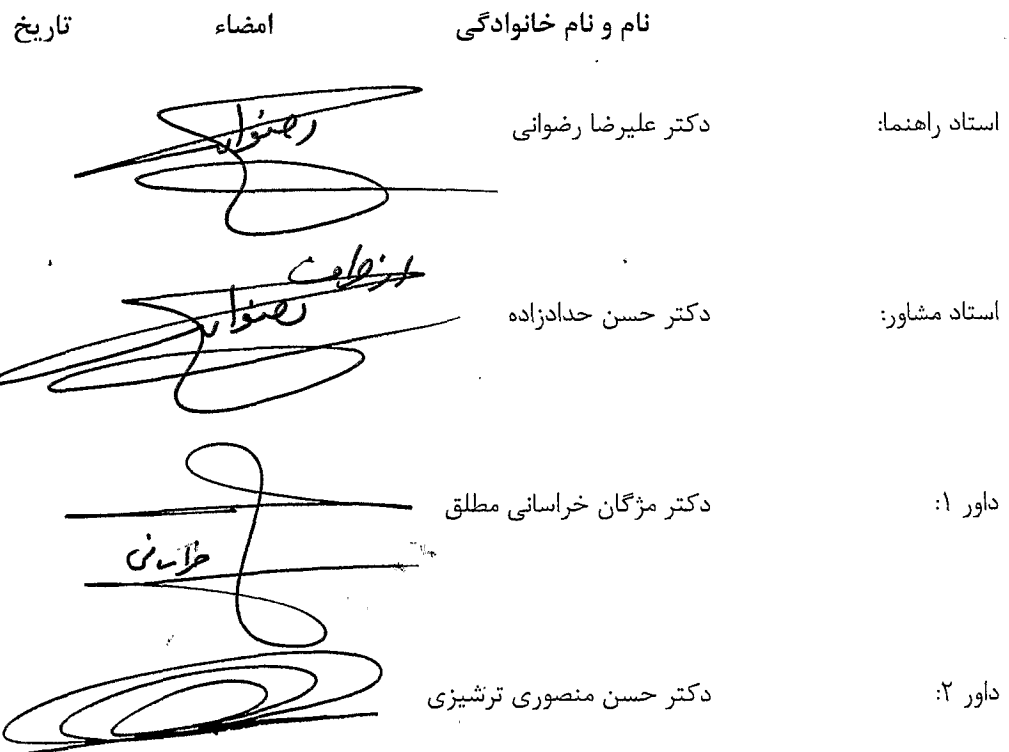 نام و نام خانوادگی امضاء تاریخ
استاد راهنما: دکتر علیرضا رضوانی رضوانی
از طرف
استاد مشاور: دکتر حسن حدادزاده رضوانی
داور ۱: دکتر مژگان خراسانی مطلق
خراسانی
داور ۲: دکتر حسن منصوری ترشیزی